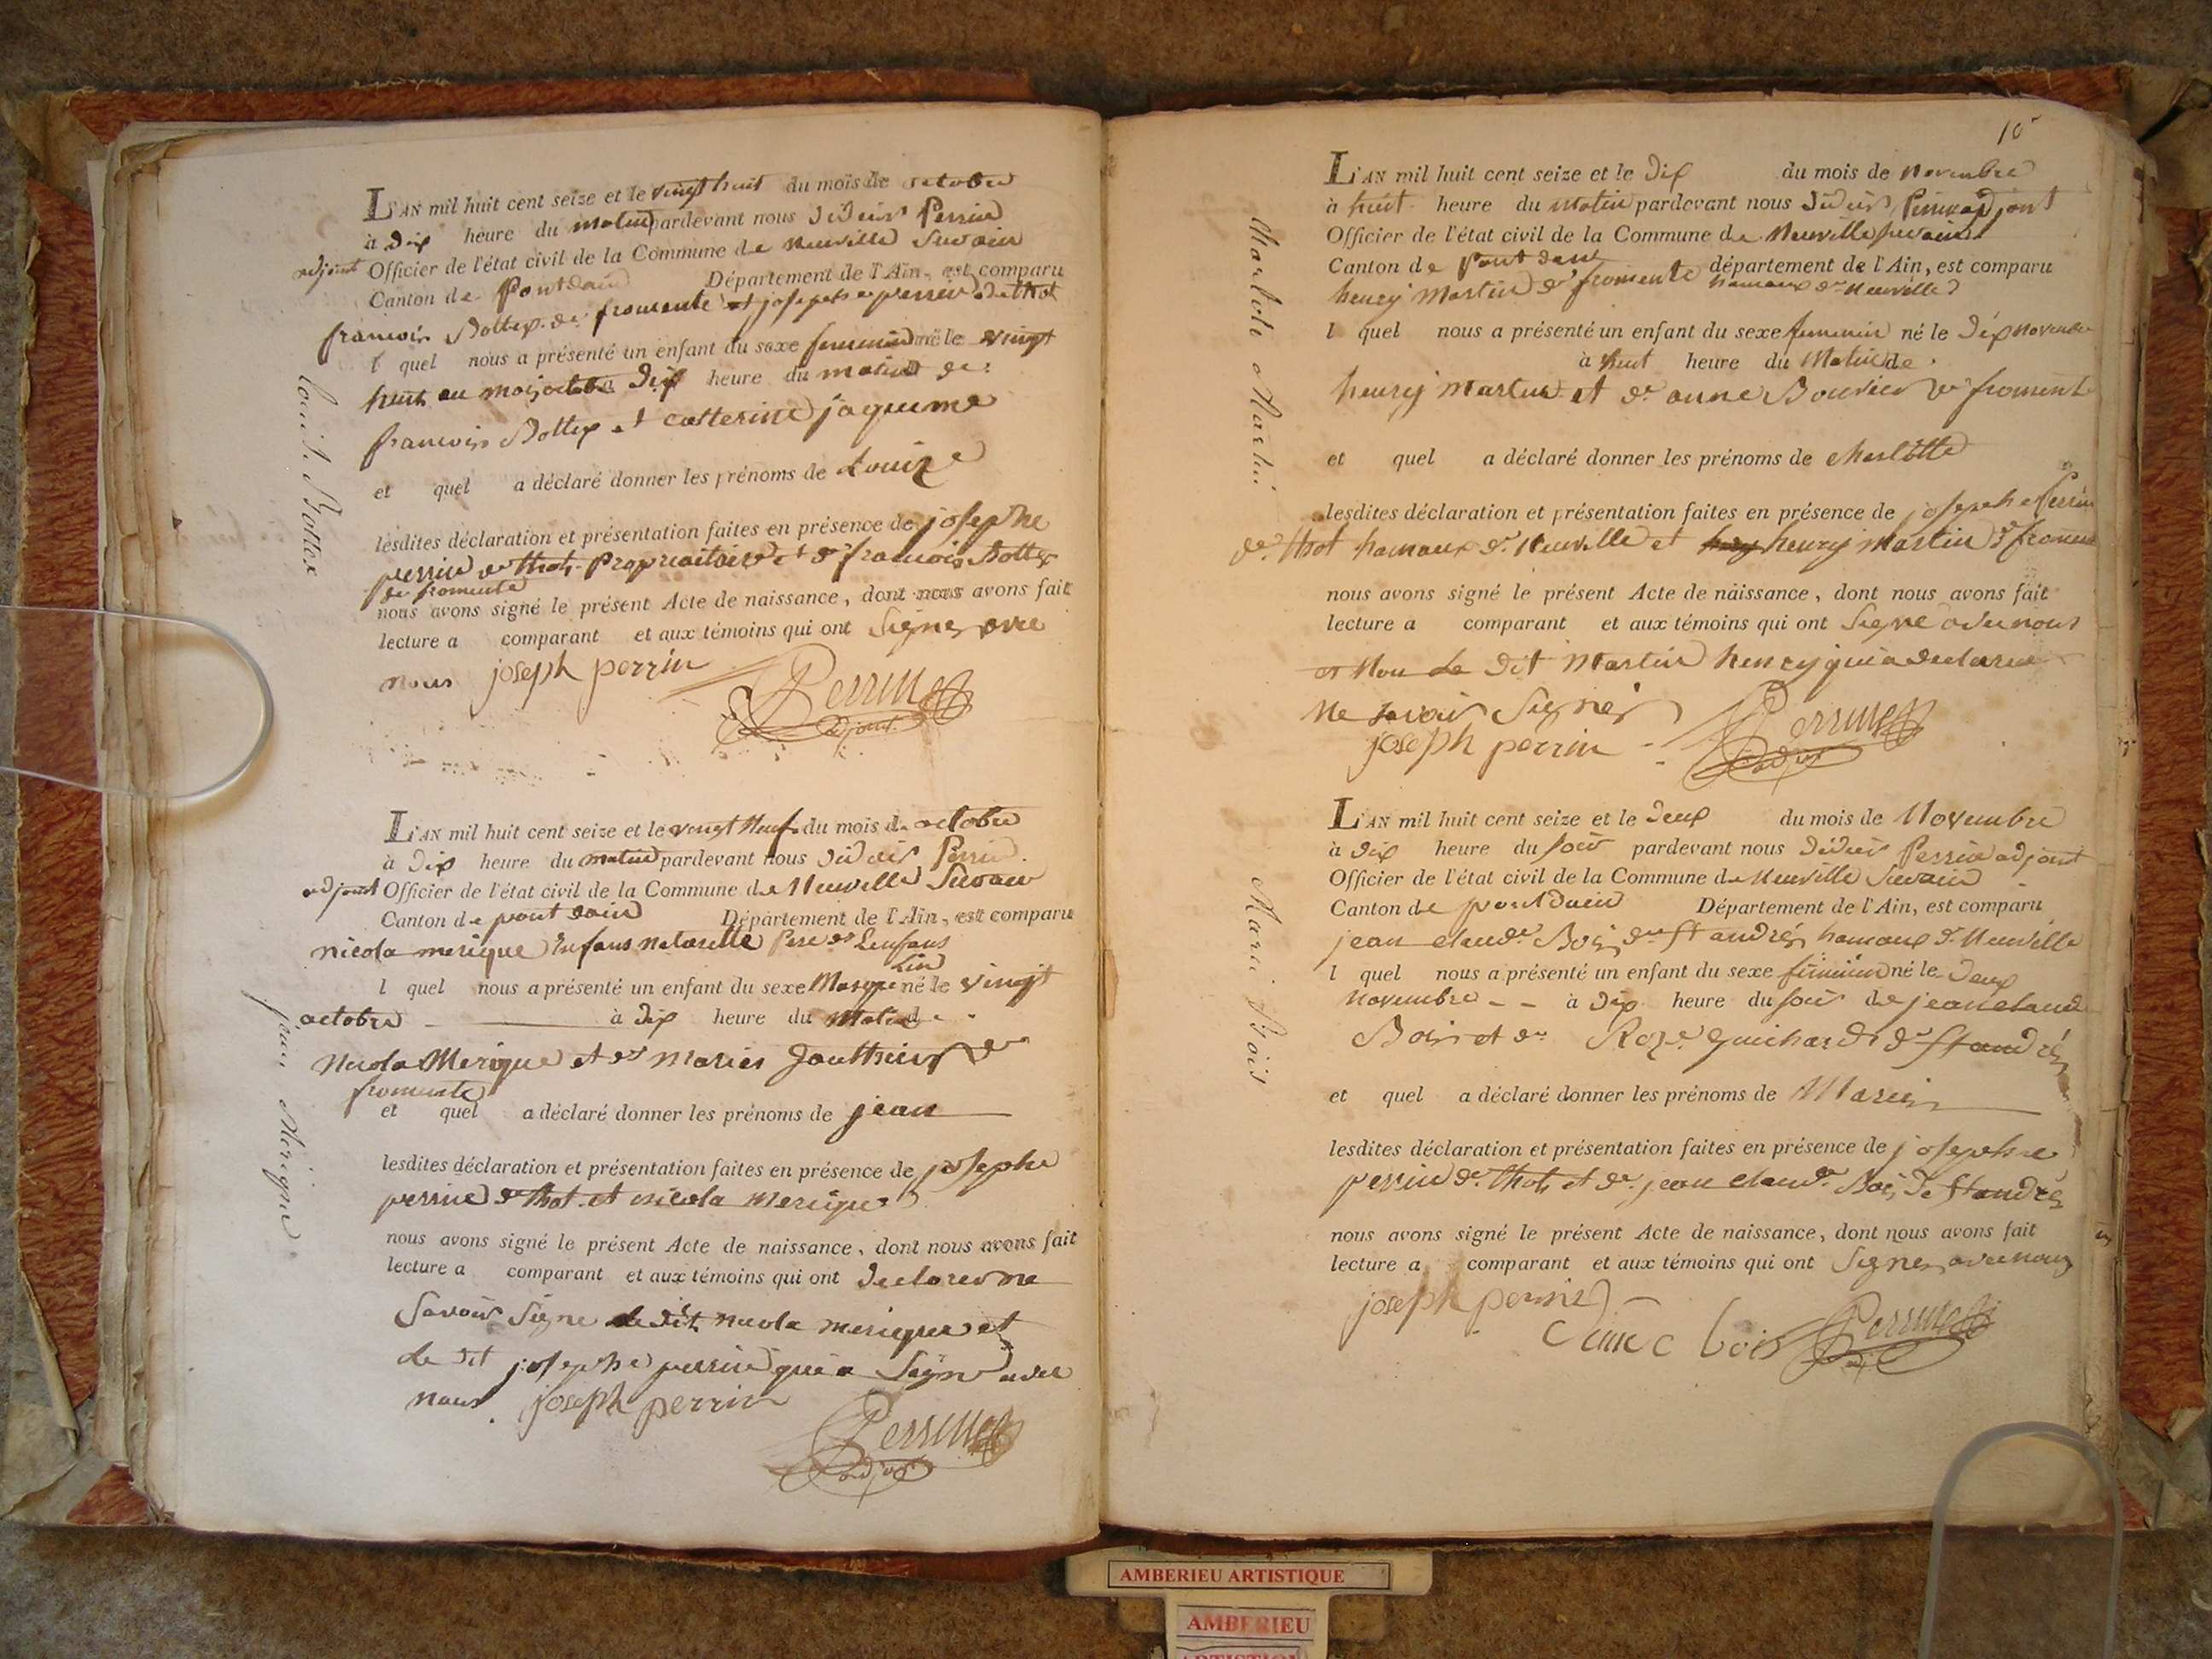 L'AN mil huit cent seize et le vingt huit du mois de octobre
à dix heure du matin pardevant nous Perrin
adjoint Officier de l'état civil de la Commune de Neuville
Canton de Pontdain Département de l'Ain, est comparu
francois Bottex de fromente et josephe perrin de thot
l quel nous a présenté un enfant du sexe feminin né le vingt
huit du mois octobre dix heure du matin de
francois Bottex et catterine jaqueme
et quel a déclaré donner les prénoms de Louize
lesdites déclaration et présentation faites en présence de josephe
perrin de thot Propriaitaire et de francois Bottex
de fromente
nous avons signé le présent Acte de naissance, dont nous avons fait
lecture a comparant et aux témoins qui ont Signer avec
nous joseph perrin Perrin
adjoint
Louise Bottex
L'AN mil huit cent seize et le vingt Neuf du mois de octobre
à dix heure du matin pardevant nous Perrin
adjoint Officier de l'état civil de la Commune de Neuville
Canton de pont dain Département de l'Ain, est comparu
nicola merique Enfans naturelle Pere de Lenfans
l quel nous a présenté un enfant du sexe Masque lin né le vingt
octobre à dix heure du Matin de
Nicola Merique et de Marie Gouttier de
fromente
et quel a déclaré donner les prénoms de jean
lesdites déclaration et présentation faites en présence de josephe
perrin de thot et nicola merique
nous avons signé le présent Acte de naissance, dont nous avons fait
lecture a comparant et aux témoins qui ont declarer ne
Savoir Signe le dit nicola merique et
le dit josephe perrin qui a Signe avec
nous joseph perrin Perrin
adjoint
jean Merique
10
L'AN mil huit cent seize et le Dix du mois de Novembre
à huit heure du matin pardevant nous Perrin adjoint
Officier de l'état civil de la Commune de Neuville
Canton de Pont dain département de l'Ain, est comparu
henry Martin de fromente hamaux de Neuville
l quel nous a présenté un enfant du sexe feminin né le Dix Novembre
à huit heure du Matin de
henry Martin et de anne Bouvier de fromente
et quel a déclaré donner les prénoms de charlotte
lesdites déclaration et présentation faites en présence de josephe Perrin
de thot hamaux de Neuville et henry Martin de fromente
nous avons signé le présent Acte de naissance, dont nous avons fait
lecture a comparant et aux témoins qui ont Signé avec nous
et Non Le Dit Martin henry qui a declarer
Ne Savoir Signer
joseph perrin Perrin
adjoint
Charlote Martin
L'AN mil huit cent seize et le Deux du mois de Novembre
à dix heure du soir pardevant nous Perrin adjoint
Officier de l'état civil de la Commune de Neuville
Canton de pontdain Département de l'Ain, est comparu
jean claude Bois de St andrés hamaux de Neuville
l quel nous a présenté un enfant du sexe feminin né le Deux
Novembre à Dix heure du soir de jean claude
Bois et de Roze Guichard de St andrés
et quel a déclaré donner les prénoms de Marie
lesdites déclaration et présentation faites en présence de josephe
perrin de thot et de jean claude Bois de St andrés
nous avons signé le présent Acte de naissance, dont nous avons fait
lecture a comparant et aux témoins qui ont Signer avec nous
joseph perrin
bois Perrin
Marie Bois
AMBERIEU ARTISTIQUE
AMBERIEU
ARTISTIQUE